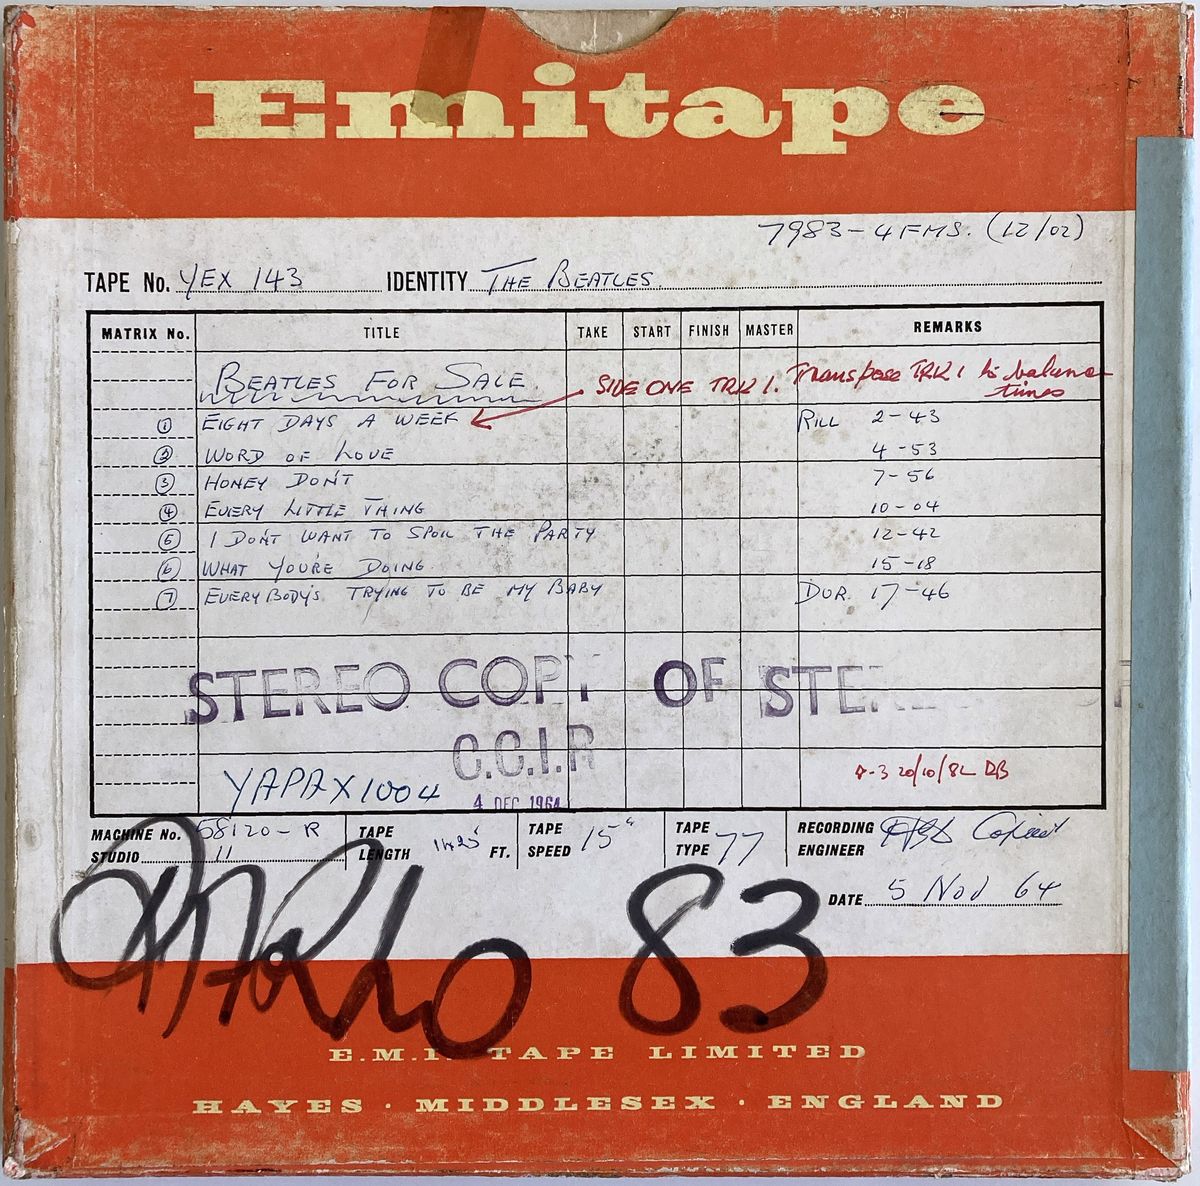 Emitape
7983-4FMS. (12/02)
TAPE No. YEX 143 IDENTITY THE BEATLES.
MATRIX No. TITLE TAKE START FINISH MASTER REMARKS
BEATLES FOR SALE SIDE ONE TRK 1. Transpose TRK 1 to balance
times
1 EIGHT DAYS A WEEK RILL 2-43
2 WORD OF LOVE 4-53
3 HONEY DON'T 7-56
4 EVERY LITTLE THING 10-04
5 I DON'T WANT TO SPOIL THE PARTY 12-42
6 WHAT YOU'RE DOING. 15-18
7 EVERYBODY'S TRYING TO BE MY BABY DUR. 17-46
STEREO COPY OF STE
C.C.I.R
YAPAX1004
4 DEC 1964
20/10/82 DB
MACHINE No. 58120-R TAPE LENGTH 1425' FT. TAPE SPEED 15" TAPE TYPE 77 RECORDING ENGINEER
STUDIO 11
DATE 5 Nov 64
83
E.M.I. TAPE LIMITED
HAYES · MIDDLESEX · ENGLAND